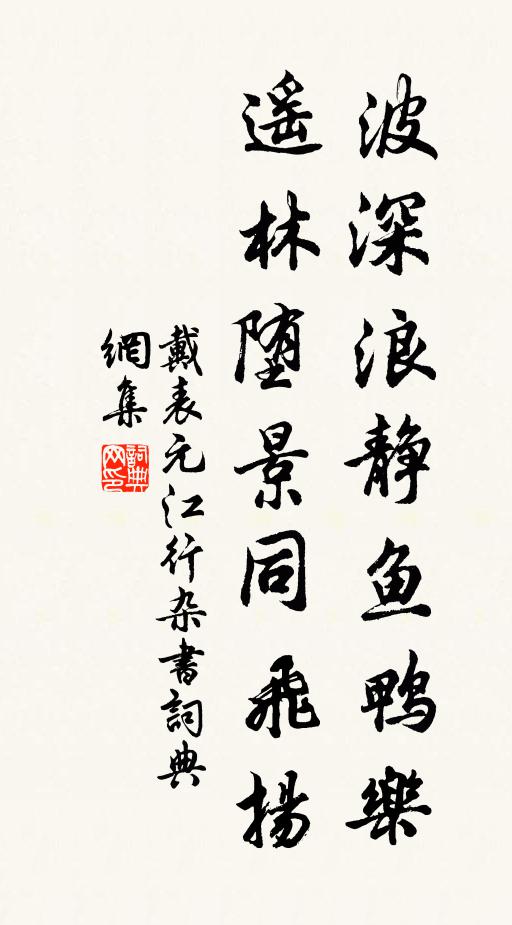 波深浪静鱼鸭樂
遥林堕景同飛揚
戴表元江行杂書詞典
網集
詞典
网印